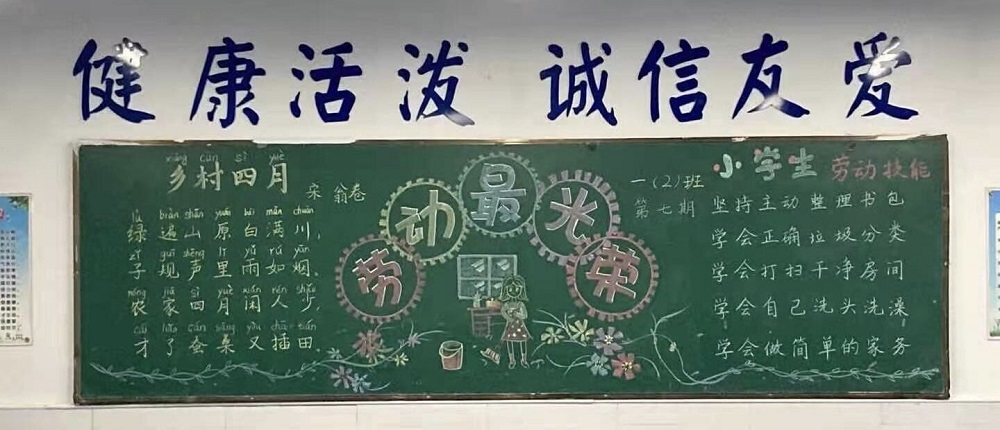 健康活泼 诚信友爱
xiāng cūn sì yuè
乡村四月
宋 翁卷
lǜ biàn shān yuán bái mǎn chuān
绿遍山原白满川,
zǐ guī shēng lǐ yǔ rú yān
子规声里雨如烟。
xiāng jiā sì yuè xián rén shǎo
农家四月闲人少
cái liǎo cán sāng yòu chā tián
才了蚕桑又插田.
劳动最光荣
一(2)班
第七期
小学生 劳动技能
坚持主动整理书包
学会正确垃圾分类
学会打扫干净房间
学会自己洗头洗澡
学会做简单的家务